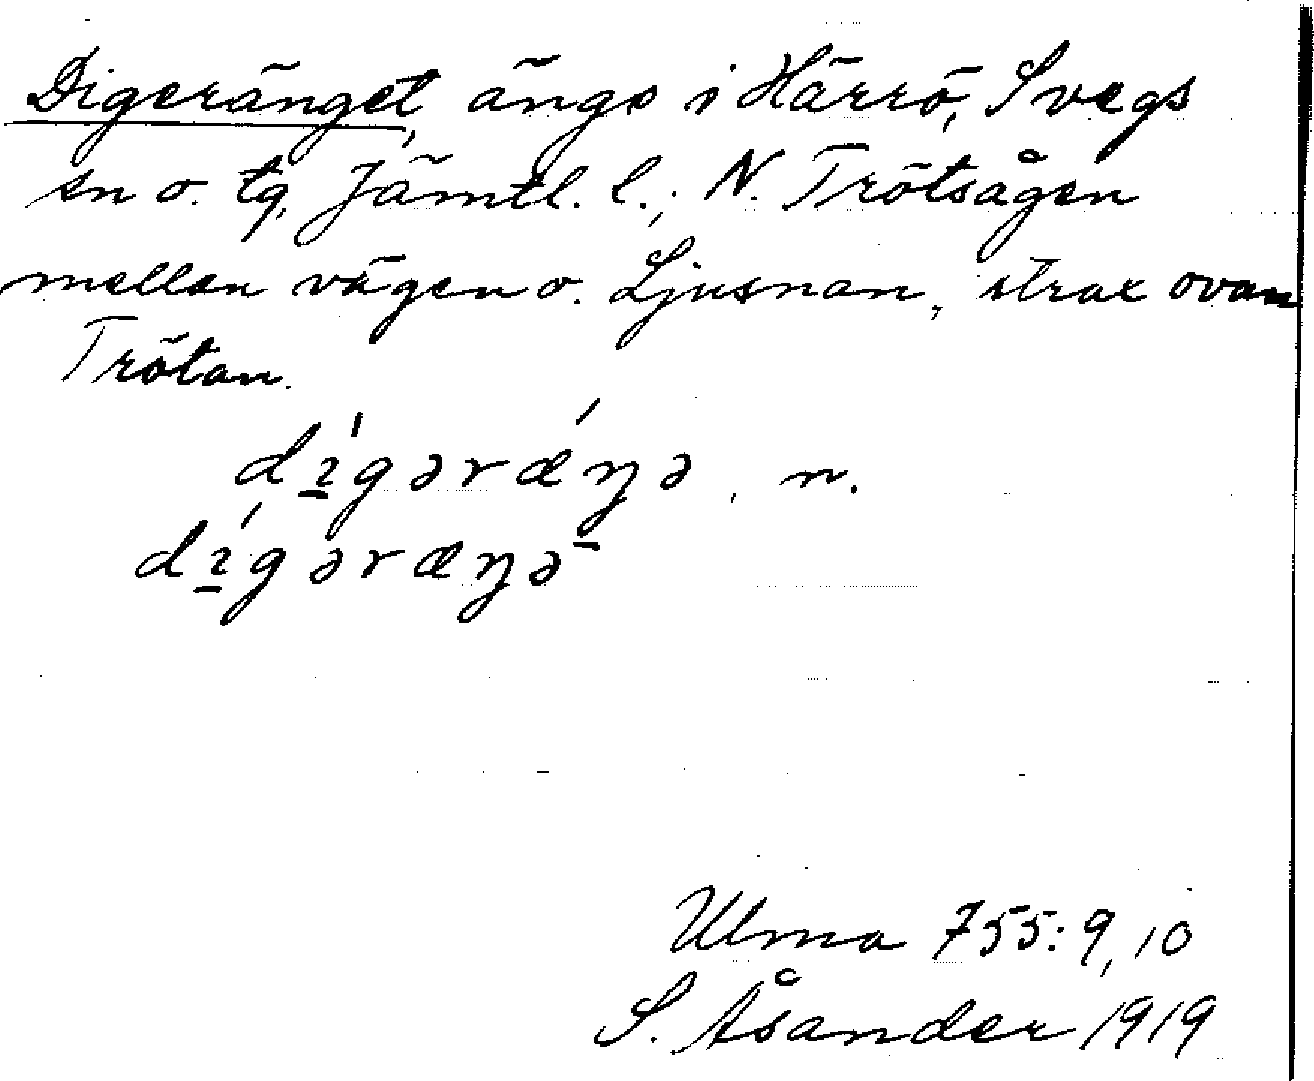 Digeränget, ängs i Härrö, Svegs
sn o. tg, Jämtl. l.; N. Trötsågen
mellan vägen o. Ljusnan, strax ovan
Trötan.
dı̱́gərǽŋə, n.
dı̱́gəræŋə-
Ulma 755: 9, 10
S. Åsander 1919